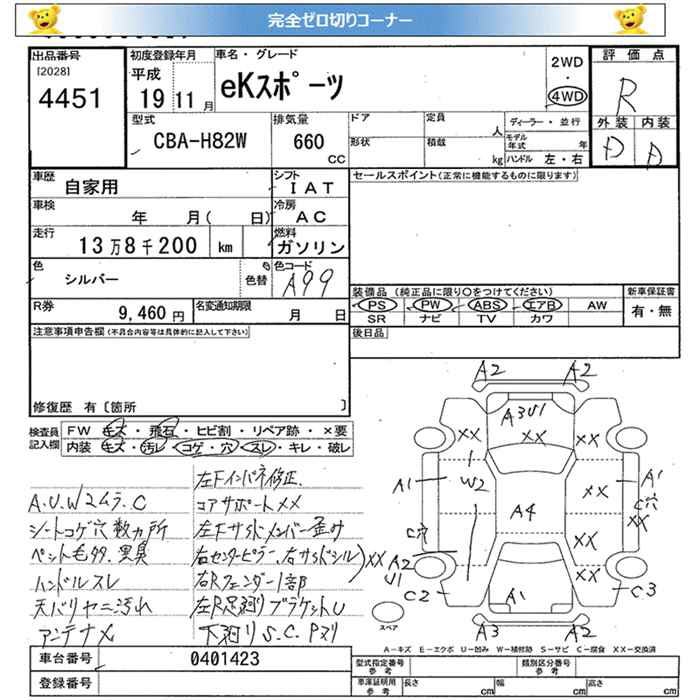 完全ゼロ切りコーナー
出品番号 初度登録年月 車名・グレード 2WD 評価点
[2028] 平成 ・
4451 19 11月 eKスポーツ 4WD R
型式 排気量 ドア 定員 人 ディーラー・並行 外装 内装
CBA-H82W 660 CC 形状 積載 kg モデル年式 年 D D
ハンドル 左・右
車歴 自家用 シフト IAT セールスポイント(正常に機能するものに限ります)
車検 年 月( 日) 冷房 AC
走行 13万8千200 km 燃料 ガソリン
色 シルバー 色替 色コード A99
装備品(純正品に限り○をつけてください) 新車保証書
PS PW ABS エアB AW 有・無
SR ナビ TV カワ
R券 9,460円 名変通知期限 月 日
注意事項申告欄(不具合内容等は具体的に記入して下さい) 後日品
修復歴 有〔箇所 〕
検査員記入欄 FW キズ・飛石・ヒビ割・リペア跡・×要
内装 キズ・汚レ・コゲ・穴・スレ・キレ・破レ
A.U.W2ムラ.C
シートコゲ穴数カ所
ペット毛多.異臭
ハンドルスレ
天バリヤニ汚れ
アンテナ×
左Fインパネ修正.
コアサポート××
左Fサイドメンバー歪み
右センターピラー、右サイドシル)××
右Rフェンダー1部
左R足廻りブラケットU
下廻りS.C.Pヌリ
A2 A2
A3U1
×× ×× ××
A1 W2 A1
×× C穴
A4 ××
C穴
A2 ××
U1 ××
C2 A1 C3
A3 A2
スペア
A-キズ E-エクボ U-凹み W-補修跡 S-サビ C-腐食 ××-交換済
車台番号 0401423 型式指定番号 参考 類別区分番号 参考
登録番号 車庫証明用 参考 長さ cm 幅 cm 高さ cm